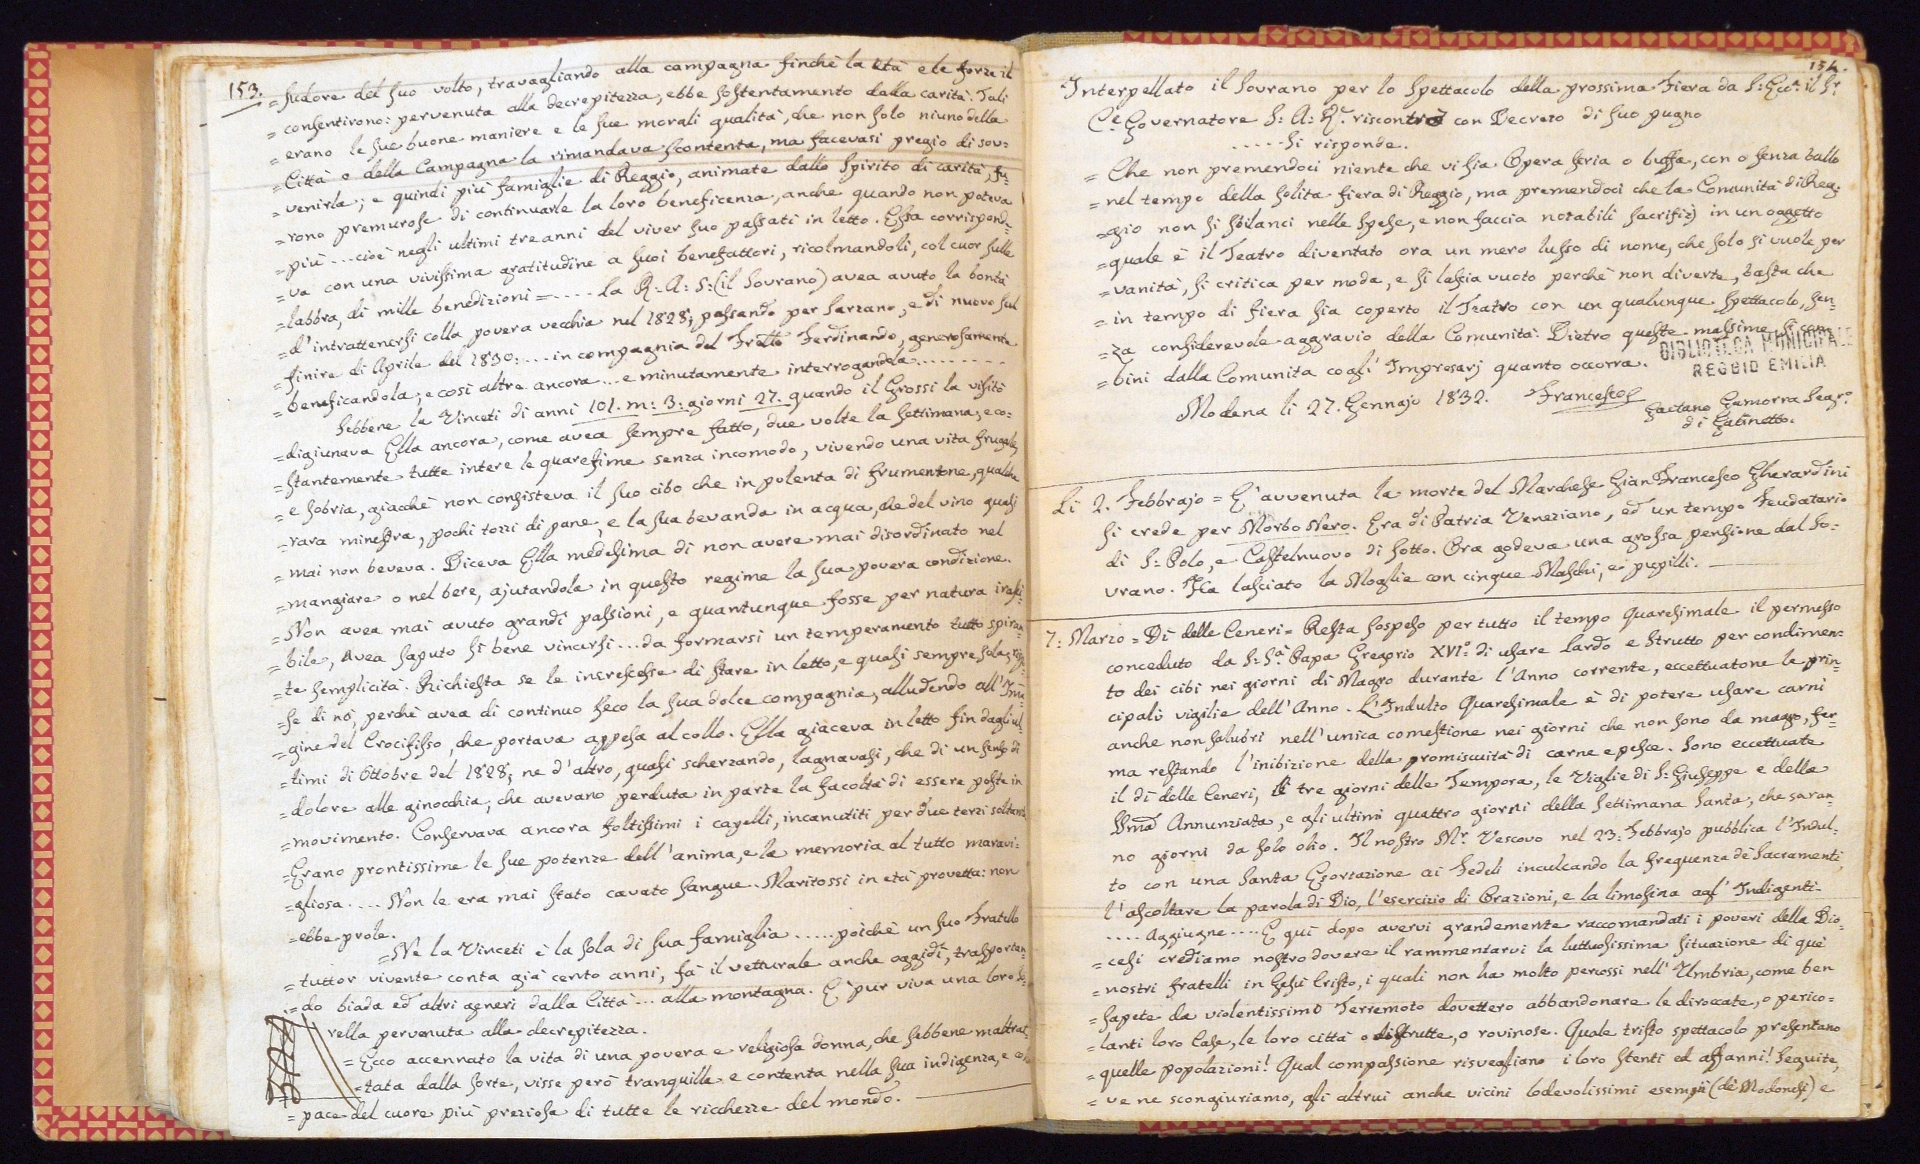 153.
=sudore del suo volto, travagliando alla campagna finchè la età e le forze il
=consentirono: pervenuta alla decrepitezza, ebbe sostentamento dalla carità. Tali
=erano le sue buone maniere e le sue morali qualità, che non solo niuno della
=Città o della Campagna la rimandava scontenta, ma facevasi pregio di sov=
=venirla; e quindi più famiglie di Reggio, animate dallo Spirito di carità, fu=
=rono premurose di continuarle la loro beneficenza, anche quando non poteva
=più ... cioè negli ultimi tre anni del viver suo passati in letto. Essa corrisponde=
=va con una vivissima gratitudine a suoi benefattori, ricolmandoli, col cuor sulle
=labbra, di mille benedizioni = .... La R. A. S: (il Sovrano) avea avuto la bontà
=d'intrattenersi colla povera vecchia nel 1828; passando per Sarzano, e di nuovo sul
=finire di Aprile del 1830: .... in compagnia del Frāllo Ferdinando, generosamente
=beneficandola; e così altre ancora ... e minutamente interrogandola ..........
Sebbene la Vinceti di anni 101. m: 3: giorni 27. quando il Grossi la visitò
=digiunava Ella ancora, come avea sempre fatto, due volte la settimana, e co=
=stantemente tutte intere le quaresime senza incomodo, vivendo una vita frugale,
=e sobria, giacchè non consisteva il suo cibo che in polenta di frumentone, qualche
=rara minestra, pochi tozzi di pane, e la sua bevanda in acqua, che del vino quasi
=mai non beveva. Diceva Ella medesima di non avere mai disordinato nel
=mangiare o nel bere, ajutandola in questo regime la sua povera condizione.
=Non avea mai avuto grandi passioni, e quantunque fosse per natura irasci=
=bile, avea saputo si bene vincersi ... da formarsi un temperamento tutto spiran=
=te semplicità. Richiesta se le increscesse di stare in letto, e quasi sempre sola, rispo=
=se di nò, perchè avea di continuo seco la sua dolce compagnia, alludendo all'Ima=
=gine del Crocifisso, che portava appesa al collo. Essa giaceva in letto fin dagli ul=
=timi di Ottobre del 1828; ne d'altro, quasi scherzando, lagnavasi, che di un senso di
=dolore alle ginocchia; che avevano perduta in parte la facoltà di essere poste in
=movimento. Conservava ancora foltissimi i capelli, incanutiti per due terzi soltanto.
=Erano prontissime le sue potenze dell'anima, e la memoria al tutto maravi=
=gliosa .... Non le era mai stato cavato sangue. Maritossi in età provetta: non
=ebbe prole.
=Ne la Vinceti è la sola di sua famiglia ..... poichè un suo Fratello
=tuttor vivente conta già cento anni, fà il vetturale anche oggidì, trasportan=
=do biada ed altri generi dalla Città ... alla montagna. E pur viva una loro So=
rella pervenuta alla decrepitezza.
=Ecco accennato la vita di una povera e religiosa donna, che sebbene maltrat=
=tata dalla sorte, visse però tranquilla e contenta nella sua indigenza, e
=pace del cuore più preziosa di tutte le ricchezze del mondo.
154.
Interpellato il Sovrano per lo spettacolo della prossima Fiera da S: Ecc.ª il Sr.
Ce. Governatore S: A: Re. riscontrò con Decreto di suo pugno
..... Si risponde..
=Che non premendoci niente che vi sia Opera seria o buffa, con o senza ballo
=nel tempo della solita fiera di Reggio, ma premendoci che la Comunità di Reg=
=gio non si sbilanci nelle spese, e non faccia notabili sacrifizj in un oggetto
=quale è il Teatro diventato ora un mero lusso di nome, che solo si vuole per
=vanità, si critica per moda, e si lascia vuoto perchè non diverte, basta che
=in tempo di fiera sia coperto il Teatro con un qualunque spettacolo, sen=
=za considerevole aggravio della Comunità. Dietro queste massime si com=
=bini dalla Comunità cogl'Impresarj quanto occorra.
BIBLIOTECA MUNICIPALE
REGGIO EMILIA
Modena li 27. Gennajo 1832. Francesco
Gaetano Gamorra Segr.º
di Gabinetto.
Li 2. Febbrajo = E' avvenuta la morte del Marchese Gian Francesco Gherardini
si crede per Morbo Nero. Era di Patria Veneziano, ed un tempo Feudatario
di S: Polo, e Castelnuovo di Sotto. Ora godeva una grossa pensione dal So=
vrano. Ha lasciato la Moglie con cinque Maschi, e pupilli.
7: Marzo = Dì delle Ceneri = Resta sospeso per tutto il tempo Quaresimale il permesso
conceduto da S: S.ª Papa Gregorio XVI.º di usare Lardo e Strutto per condimen=
to dei cibi nei giorni di Magro durante l'Anno corrente, eccettuatone le prin=
cipali vigilie dell'Anno. L'Indulto Quaresimale è di potere usare carni
anche non salubri nell'unica comestione nei giorni che non sono da magro, fer=
ma restando l'inibizione della promiscuità di carne e pesce. Sono eccettuate
il dì delle Ceneri, li tre giorni delle Tempora, le Vigilie di S: Giuseppe e della
SSma Annunziata, e gli ultimi quattro giorni della Settimana Santa, che saran=
no giorni da solo olio. Il nostro Mr. Vescovo nel 23: Febbrajo pubblica l'Indul=
to con una Santa Esortazione ai Fedeli inculcando la frequenza de' Sacramenti,
l'ascoltare la parola di Dio, l'esercizio di Orazioni, e la limosina agl'Indigenti.
.... Aggiugne .... E quì dopo avervi grandemente raccomandati i poveri della Dio=
=cesi crediamo nostro dovere il rammentarvi la luttuosissima situazione di què
=nostri fratelli in Gesù Cristo, i quali non ha molto percossi nell'Umbria, come ben
=sapete da violentissimo Terremoto dovettero abbandonare le diroccate, o perico=
=lanti loro Case, le loro città o distrutte, o rovinose. Quale tristo spettacolo presentano
=quelle popolazioni! Qual compassione risvegliano i loro stenti ed affanni! Seguite,
=ve ne scongiuriamo, gli altrui anche vicini lodevolissimi esempj (de' Modonesi) e